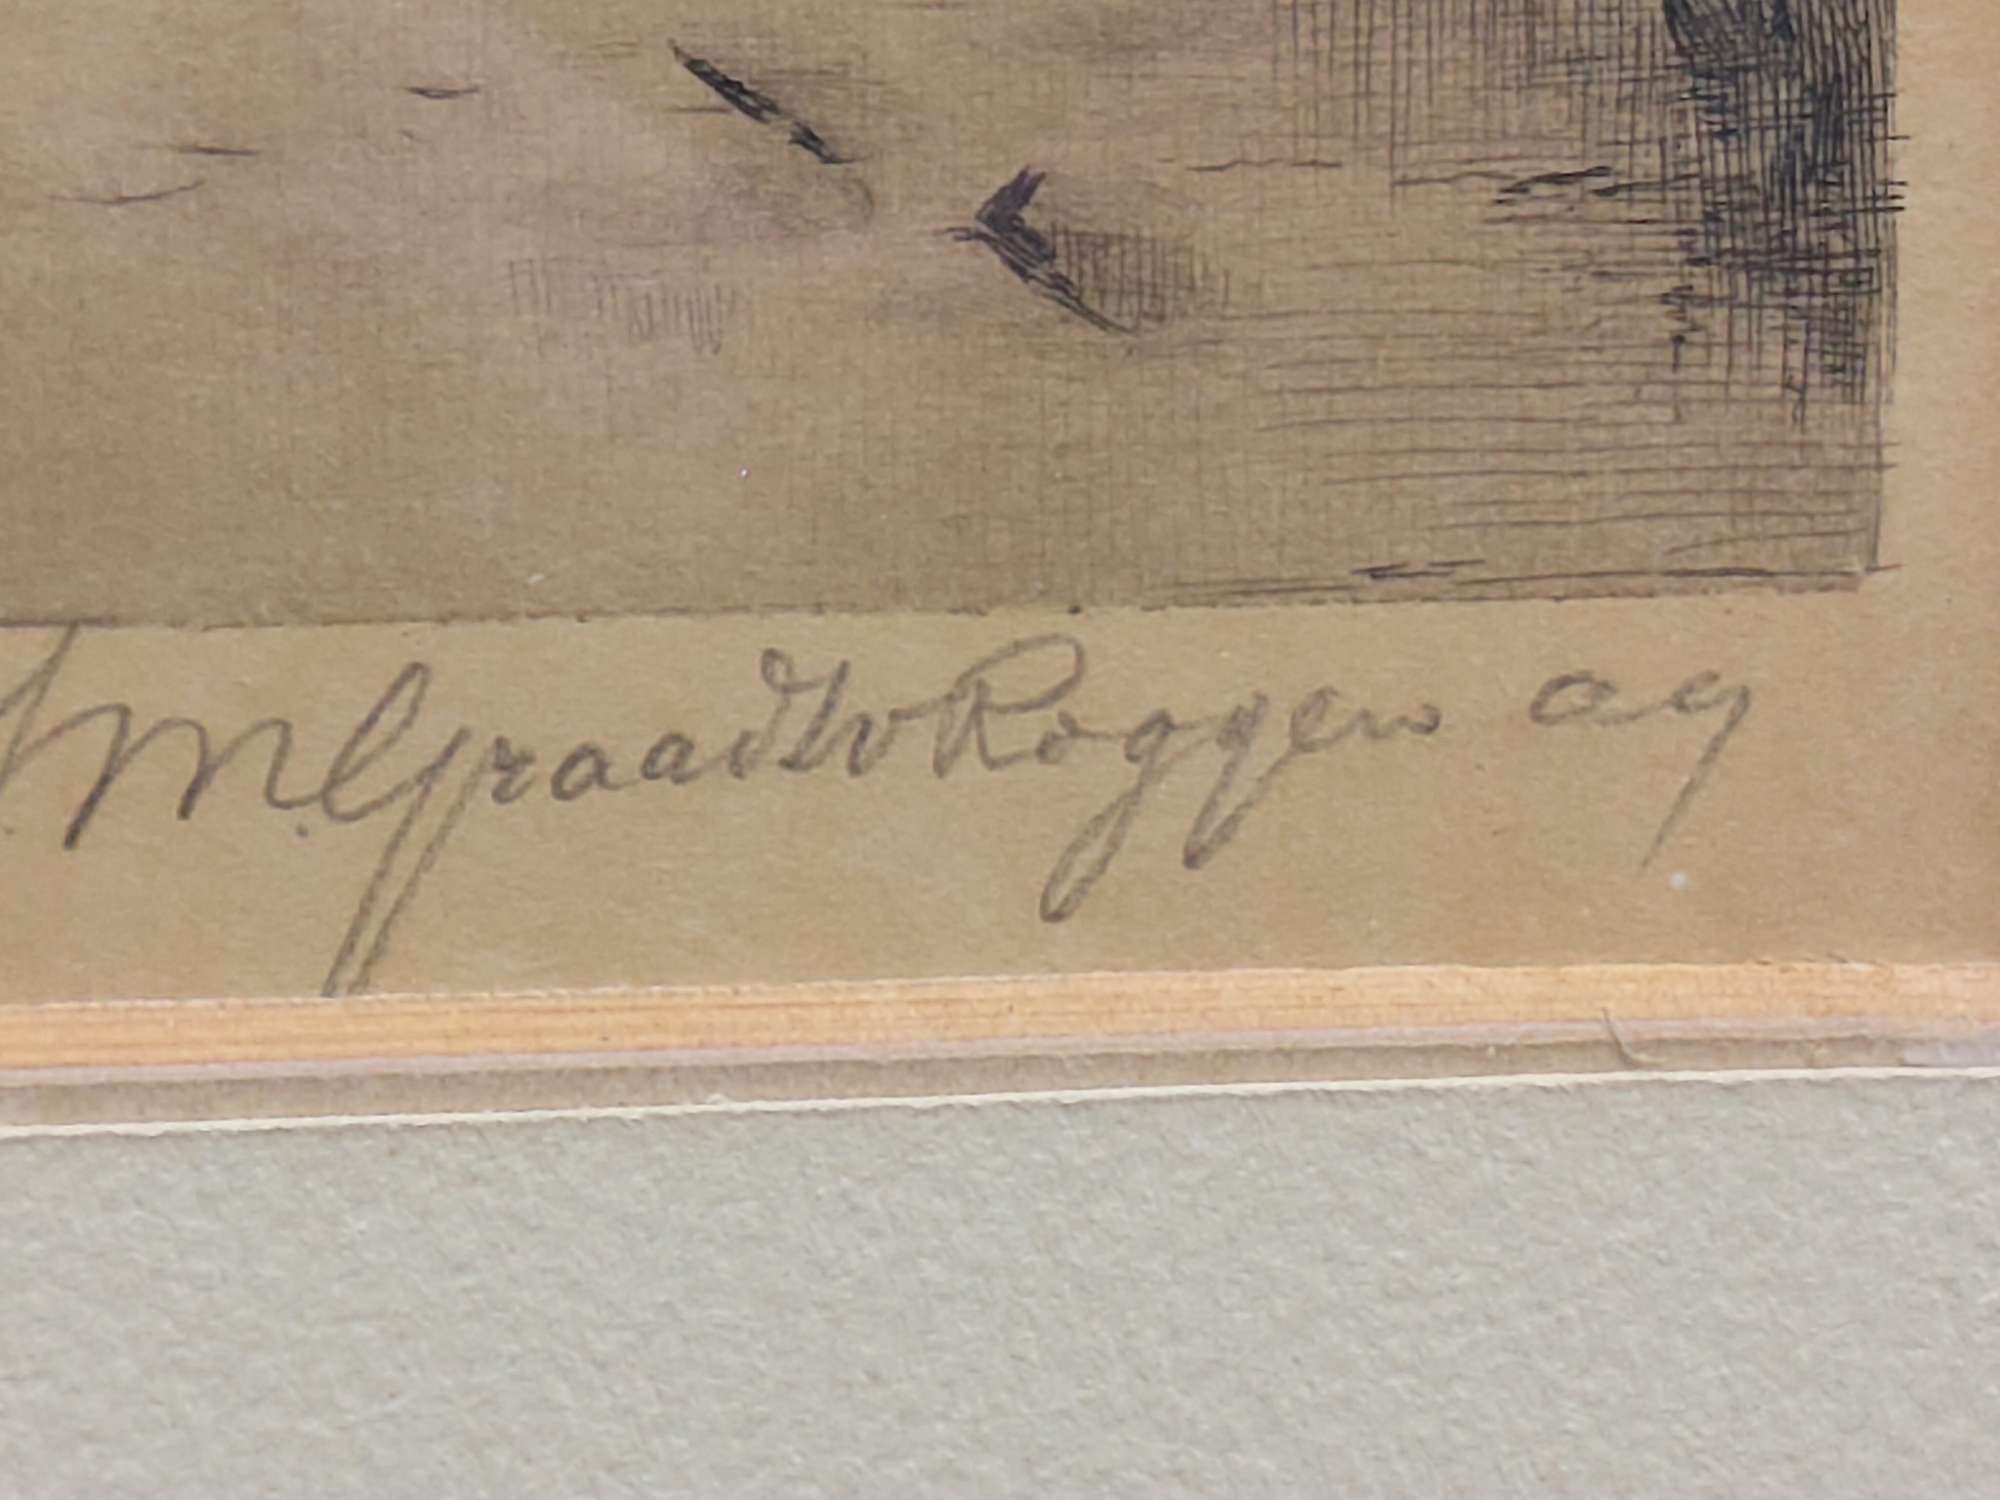 Wm. Graadt v Roggen aq